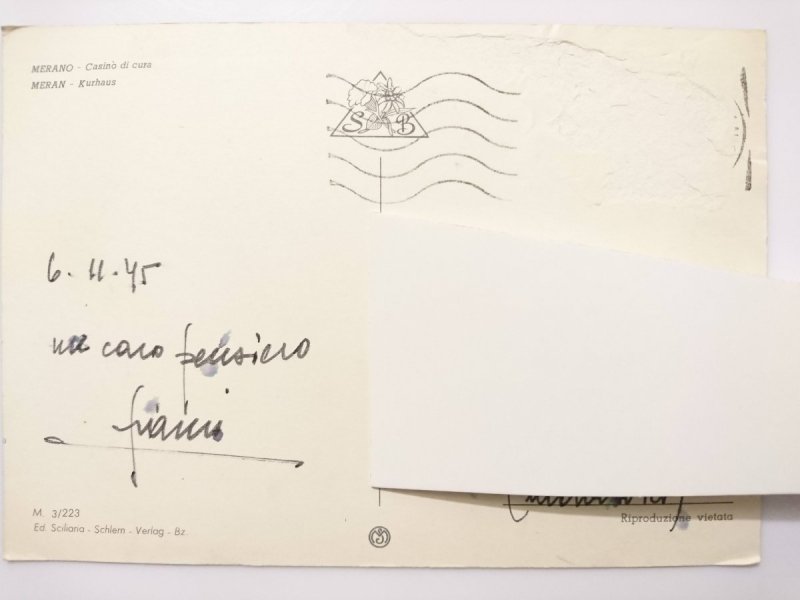 MERANO - Casinò di cura
MERAN - Kurhaus
S B
6. 11. 45
un caro pensiero
Gianni
M. 3/223
Ed. Sciliana - Schlern - Verlag - Bz.
Riproduzione vietata